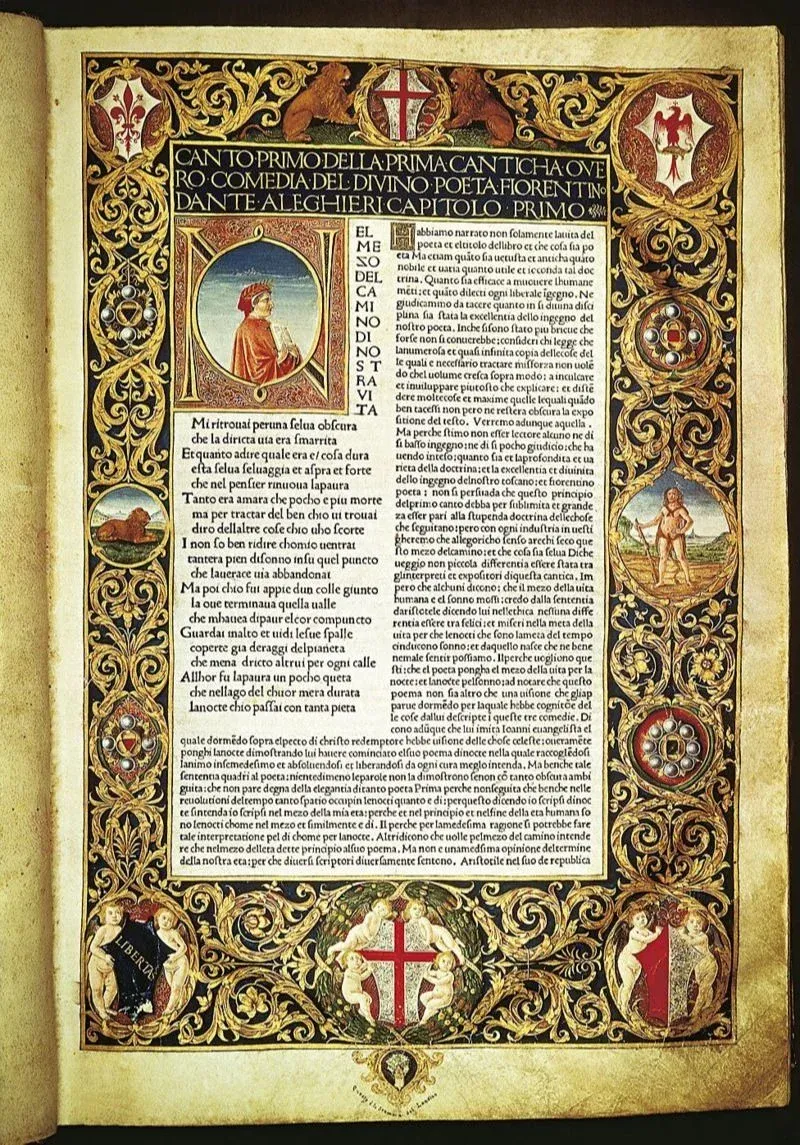 CANTO·PRIMO·DELLA·PRIMA·CANTICHA·OVE
RO·COMEDIA·DEL·DIVINO·POETA·FIORENTINO
DANTE·ALEGHIERI·CAPITOLO·PRIMO
N
EL
ME
ZO
DEL
CA
MI
NO
DI
NO
S T
RA
VI
TA
Mi ritrouai peruna selua obscura
che la diricta uia era smarrita
Et quanto adire quale era e/ cosa dura
esta selua seluaggia et aspra et forte
che nel pensier rinuoua lapaura
Tanto era amara che pocho e piu morte
ma per tractar del ben chio ui trouai
diro dellaltre cose chio uho scorte
I non so ben ridire chomio uentrai
tantera pien disonno insu quel puncto
che lauerace uia abbandonai
Ma poi chio fui appie dun colle giunto
la oue terminaua quella ualle
che mhauea dipaur elcor compuncto
Guardai inalto et uidi lesue spalle
coperte gia deraggi delpianeta
che mena dricto altrui per ogni calle
Allhor fu lapaura un pocho queta
che nellago del chuor mera durata
lanocte chio passai con tanta pieta
Habbiamo narrato non solamente lauita del
poeta et eltitolo dellibro et che cosa sia po
eta Ma etiam quãto sia uetusta et anticha quãto
nobile et uaria quanto utile et ioconda tal doc
trina. Quanto sia efficace a muouere lhumane
mẽti: et quãto dilecti ogni liberale ĩgegno. Ne
giudicammo da tacere quanto in si diuina disci
plina sia stata la excellentia dello ingegno del
nostro poeta. Inche sisono stato piu brieue che
forse non si conuerrebbe: consideri chi legge che
lanumerosa et quasi infinita copia dellecose del
le quali e necessario tractare misforza non uolẽ
do chel uolume cresca sopra modo: a inculcare
et inuiluppare piutosto che explicare: et distẽ
dere moltecose et maxime quelle lequali quãdo
ben tacessi non pero ne restera obscura la expo
sitione del testo. Verremo adunque aquella.
Ma perche stimo non esser lectore alcuno ne di
si basso ingegno: ne di si pocho giudicio: che ha
uendo inteso: quanto sia et laprofondita et ua
rieta della doctrina: et la excellentia et diuinita
dello ingegno delnostro toscano: et fiorentino
poeta: non si persuada che questo principio
delprimo canto debba per sublimita et grande
za esser pari alla stupenda doctrina dellechose
che seguitano: pero con ogni industria in uesti
gheremo che allegoricho senso arechi seco que
sto mezo delcamino: et che cosa sia selua Diche
ueggio non piccola differentia essere stata tra
glinterpreti et expositori diquesta cantica. Im
pero che alchuni dicono: che il mezo della uita
humana e el sonno mossi: credo dalla sententia
daristotele dicendo lui nellethica nessuna diffe
rentia essere tra felici: et miseri nella meta della
uita per che lenocti che sono lameta del tempo
cinducono sonno: et daquello nasce che ne bene
nemale sentir possiamo. Ilperche uogliono que
sti: che el poeta pongha el mezo della uita per la
nocte: et lanocte pelsonno: ad notare che questo
poema non sia altro che una uisione che gliap
parue dormẽdo per laquale hebbe cognitiõe del
le cose dallui descripte ĩ queste tre comedie. Di
cono adũque che lui imita Ioanni euangelista el
quale dormẽdo sopra elpecto di christo redemptore hebbe uisione delle chose celeste: oueramẽte
ponghi lanocte dimostrando lui hauere cominciato elsuo poema dinocte nella quale raccogliẽdosi
lanimo insemedesimo et absoluendosi et liberandosi da ogni cura meglo intenda. Ma benche tale
sententia quadri al poeta: nientedimeno leparole non la dimostrono senon cõ tanto obscura ambi
guita: che non pare degna della elegantia ditanto poeta Prima perche nonseguita che benche nelle
reuolutioni deltempo tanto spatio occupin lenocti quanto e di: perquesto dicendo io scripsi dinoc
te sintenda io scripsi nel mezo della mia eta: perche et nel principio et nelfine della eta humana so
no lenocti chome nel mezo et similmente e di. Il perche per lamedesima ragione si potrebbe fare
tale interpretatione pel di chome per lanocte. Altri dicono che uolle pelmezo del camino intende
re che nelmezo delleta dette principio alsuo poema. Ma non e unamedsima opinione deltermine
della nostra eta: per che diuersi scriptori diuersamente sentono. Aristotile nel suo de republica
LIBERTAS